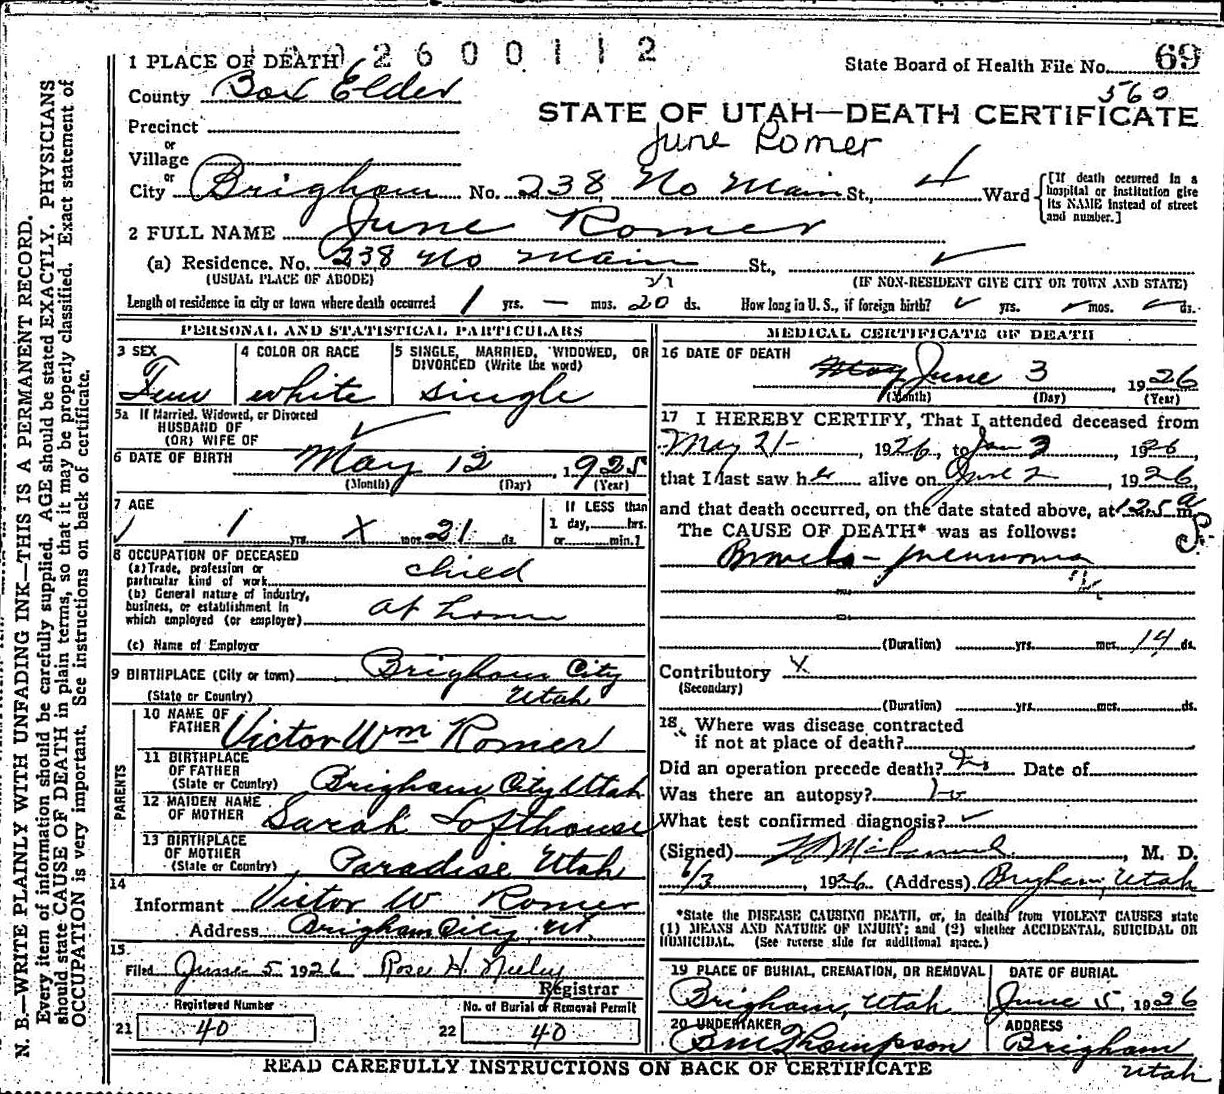 N. B.—WRITE PLAINLY WITH UNFADING INK—THIS IS A PERMANENT RECORD.
Every item of information should be carefully supplied. AGE should be stated EXACTLY. PHYSICIANS
should state CAUSE OF DEATH in plain terms, so that it may be properly classified. Exact statement of
OCCUPATION is very important. See instructions on back of certificate.
2600112
1 PLACE OF DEATH
State Board of Health File No. 69
560
County Box Elder
STATE OF UTAH—DEATH CERTIFICATE
June Romer
Precinct
or
Village
or
City Brigham No. 238 No Main St., 4 Ward
[If death occurred in a
hospital or institution give
its NAME instead of street
and number.]
2 FULL NAME June Romer
(a) Residence. No. 238 No Main St.,
(USUAL PLACE OF ABODE) (IF NON-RESIDENT GIVE CITY OR TOWN AND STATE)
Length of residence in city or town where death occurred 1 yrs. — mos. 20 ds. How long in U.S., if foreign birth? yrs. mos. ds.
PERSONAL AND STATISTICAL PARTICULARS
3 SEX Fem
4 COLOR OR RACE white
5 SINGLE, MARRIED, WIDOWED, OR
DIVORCED (Write the word)
single
5a If Married, Widowed, or Divorced
HUSBAND OF
(OR) WIFE OF
6 DATE OF BIRTH May 12 1925
(Month) (Day) (Year)
7 AGE
If LESS than
1 day, hrs.
or min.?
1 yrs. X mos. 21 ds.
8 OCCUPATION OF DECEASED
(a) Trade, profession or
particular kind of work child
(b) General nature of industry,
business, or establishment in
which employed (or employer) at home
(c) Name of Employer
9 BIRTHPLACE (City or town) Brigham City
(State or Country) Utah
PARENTS
10 NAME OF
FATHER Victor Wm Romer
11 BIRTHPLACE
OF FATHER
(State or Country) Brigham City Utah
12 MAIDEN NAME
OF MOTHER Sarah Lofthouse
13 BIRTHPLACE
OF MOTHER
(State or Country) Paradise Utah
14
Informant Victor W Romer
Address Brigham City, Ut.
15
Filed June 5 1926 Rose H. Neeley
Registrar
Registered Number
21 40
No. of Burial or Removal Permit
22 40
MEDICAL CERTIFICATE OF DEATH
16 DATE OF DEATH
May June 3 1926
(Month) (Day) (Year)
17 I HEREBY CERTIFY, That I attended deceased from
May 21- , 1926, to 3 1926
that I last saw h alive on June 2 , 1926,
and that death occurred, on the date stated above, at 125 a m.
The CAUSE OF DEATH* was as follows:
Broncho-pneumonia
(Duration) yrs. mos. 14 ds.
Contributory X
(Secondary)
(Duration) yrs. mos. ds.
18 Where was disease contracted
if not at place of death?
Did an operation precede death? No Date of
Was there an autopsy? No
What test confirmed diagnosis?
(Signed) , M. D.
6/3 , 1926 (Address) Brigham, Utah
*State the DISEASE CAUSING DEATH, or, in deaths from VIOLENT CAUSES state
(1) MEANS AND NATURE OF INJURY; and (2) whether ACCIDENTAL, SUICIDAL OR
HOMICIDAL. (See reverse side for additional space.)
19 PLACE OF BURIAL, CREMATION, OR REMOVAL
Brigham, Utah
DATE OF BURIAL
June 5, 1926
20 UNDERTAKER
Thompson
ADDRESS
Brigham
Utah
READ CAREFULLY INSTRUCTIONS ON BACK OF CERTIFICATE